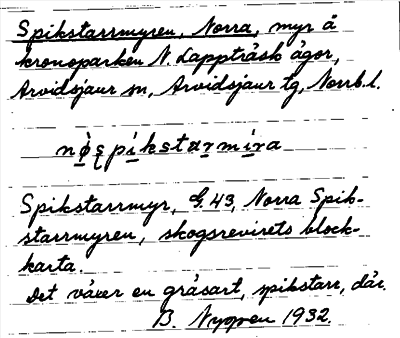 Spikstarrmyren, Norra, myr å
kronoparken N. Lappträsk ägor,
Arvidsjaur sn, Arvidsjaur tg, Norrb.l.
Spikstarrmyr, G. 43, Norra Spik-
starrmyren, skogsrevirets block-
karta.
Det växer en gräsart, spikstarr, där.
B. Nyppen 1932.